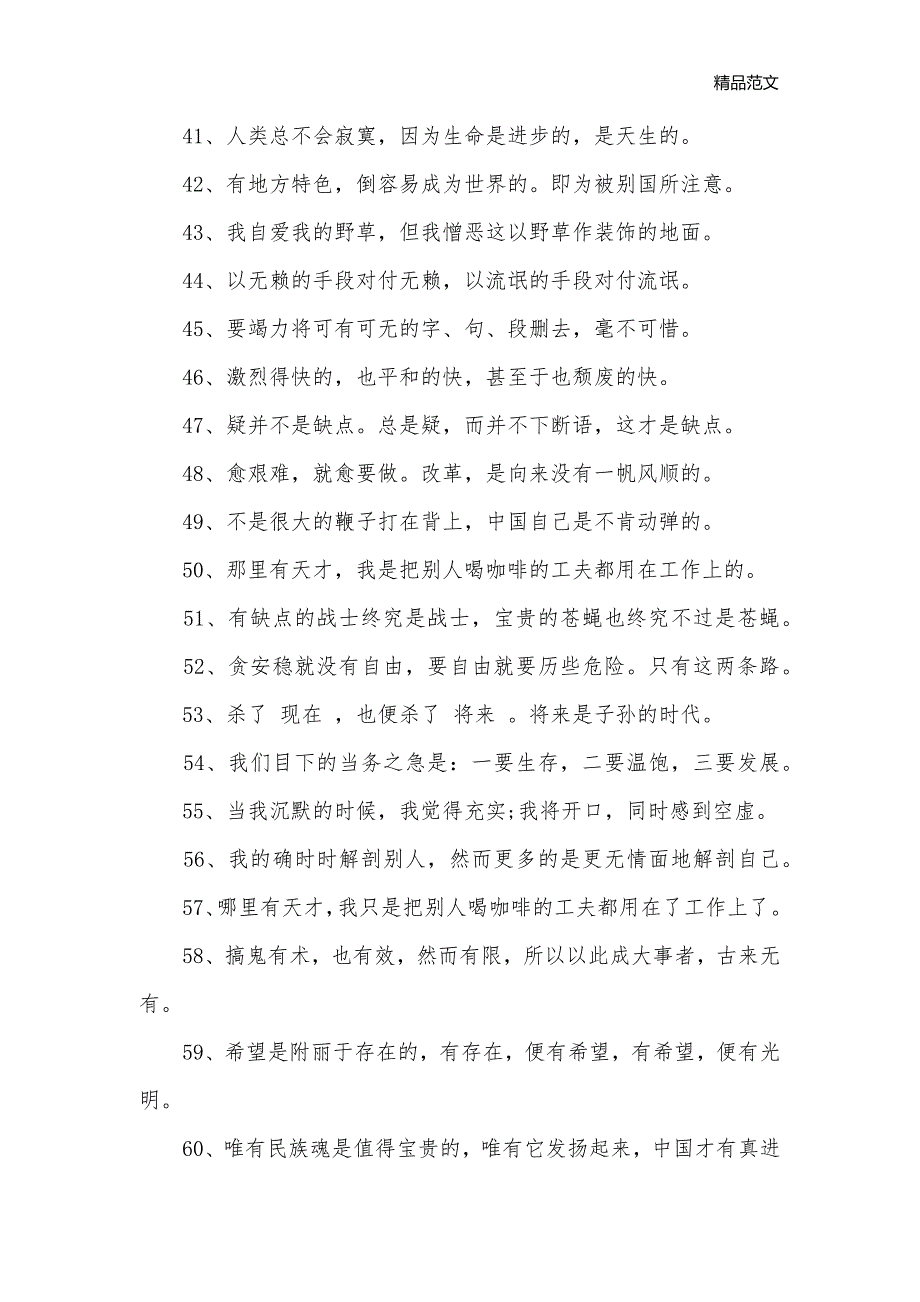 精品范文
41、人类总不会寂寞，因为生命是进步的，是天生的。
42、有地方特色，倒容易成为世界的。即为被别国所注意。
43、我自爱我的野草，但我憎恶这以野草作装饰的地面。
44、以无赖的手段对付无赖，以流氓的手段对付流氓。
45、要竭力将可有可无的字、句、段删去，毫不可惜。
46、激烈得快的，也平和的快，甚至于也颓废的快。
47、疑并不是缺点。总是疑，而并不下断语，这才是缺点。
48、愈艰难，就愈要做。改革，是向来没有一帆风顺的。
49、不是很大的鞭子打在背上，中国自己是不肯动弹的。
50、那里有天才，我是把别人喝咖啡的工夫都用在工作上的。
51、有缺点的战士终究是战士，宝贵的苍蝇也终究不过是苍蝇。
52、贪安稳就没有自由，要自由就要历些危险。只有这两条路。
53、杀了 现在 ，也便杀了 将来 。将来是子孙的时代。
54、我们目下的当务之急是：一要生存，二要温饱，三要发展。
55、当我沉默的时候，我觉得充实;我将开口，同时感到空虚。
56、我的确时时解剖别人，然而更多的是更无情面地解剖自己。
57、哪里有天才，我只是把别人喝咖啡的工夫都用在了工作上了。
58、搞鬼有术，也有效，然而有限，所以以此成大事者，古来无
有。
59、希望是附丽于存在的，有存在，便有希望，有希望，便有光
明。
60、唯有民族魂是值得宝贵的，唯有它发扬起来，中国才有真进